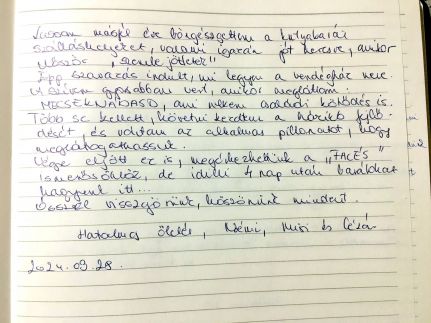 Lassan másfél éve böngészgettem a kutyabarát
szálláshelyeket, valami igazán jót keresve, amikor
először „szembejöttetek”.
Épp szavazás indult, mi legyen a vendégház neve.
A szívem gyorsabban vert, amikor megláttam:
MECSEKNÁDASD, ami nekem családi kötődés is.
Több se kellett, követni kezdtem a házikó fejlő-
dését, és vártam az alkalmas pillanatot, hogy
meglátogathassuk.
Végre eljött ez is, megérkezhettünk a „FACÉS”
ismerősökhöz, de idilli 4 nap után barátokat
hagyunk itt...
Ősszel visszajövünk, köszönünk mindent.
Hatalmas ölelés, Noémi, Misi és
2024.03.28.